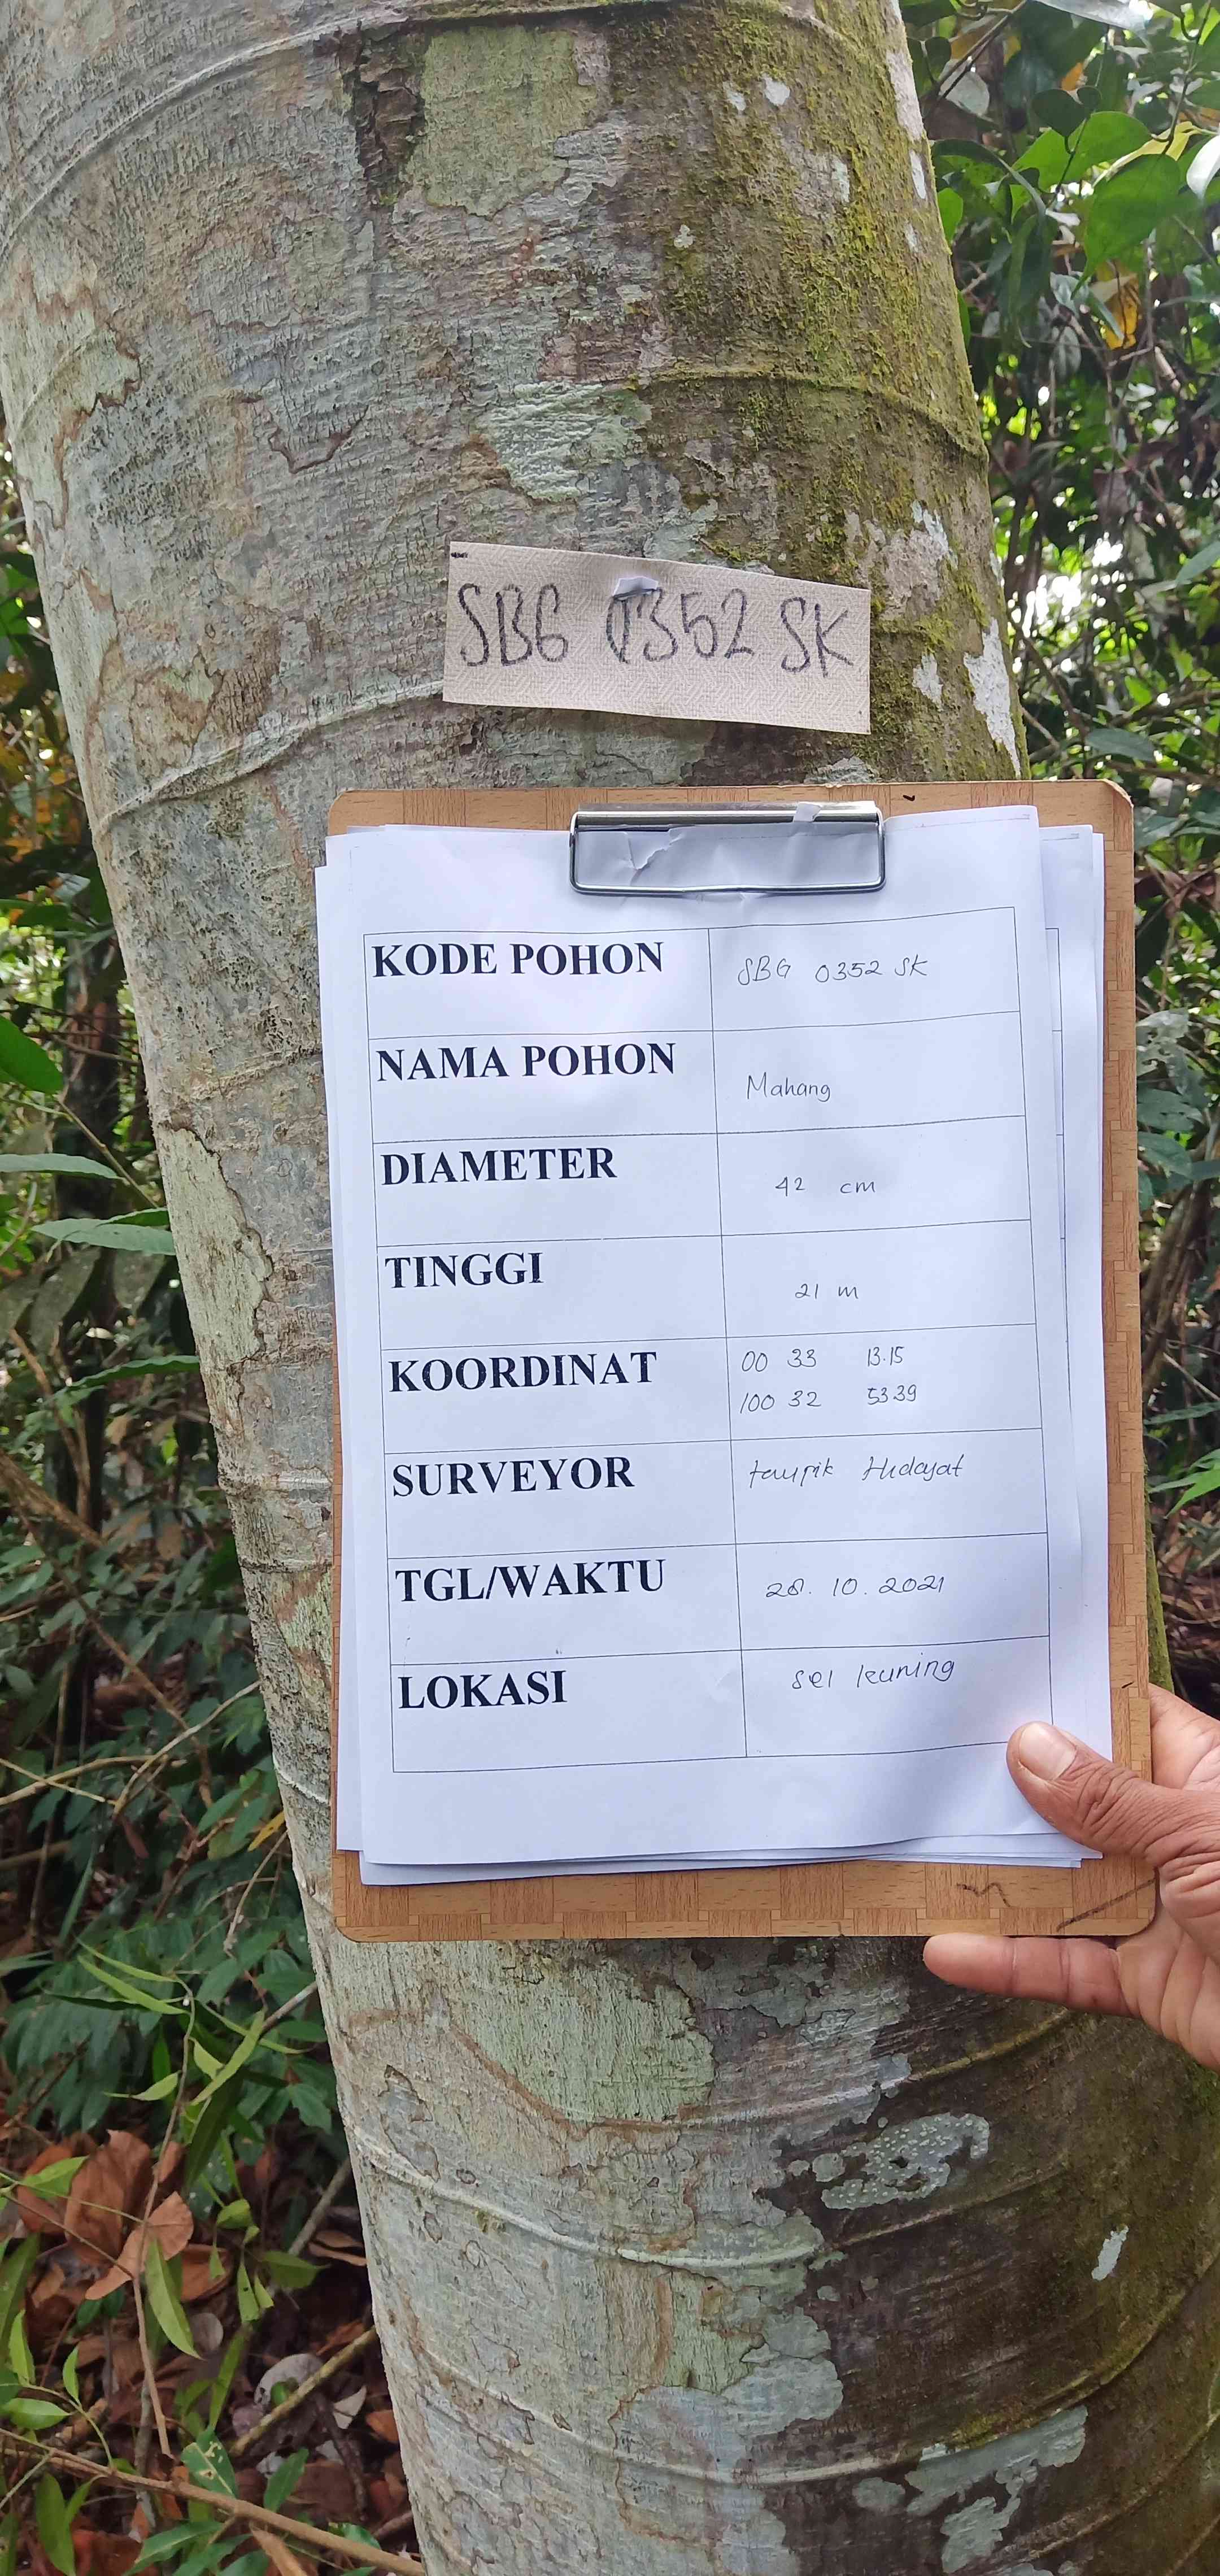 SBG 0352 SK
KODE POHON SBG 0352 SK
NAMA POHON Mahang
DIAMETER 42 cm
TINGGI 21 m
KOORDINAT 00 33 13.15
100 32 53 39
SURVEYOR taupik Hidayat
TGL/WAKTU 28. 10. 2021
LOKASI sei kuning